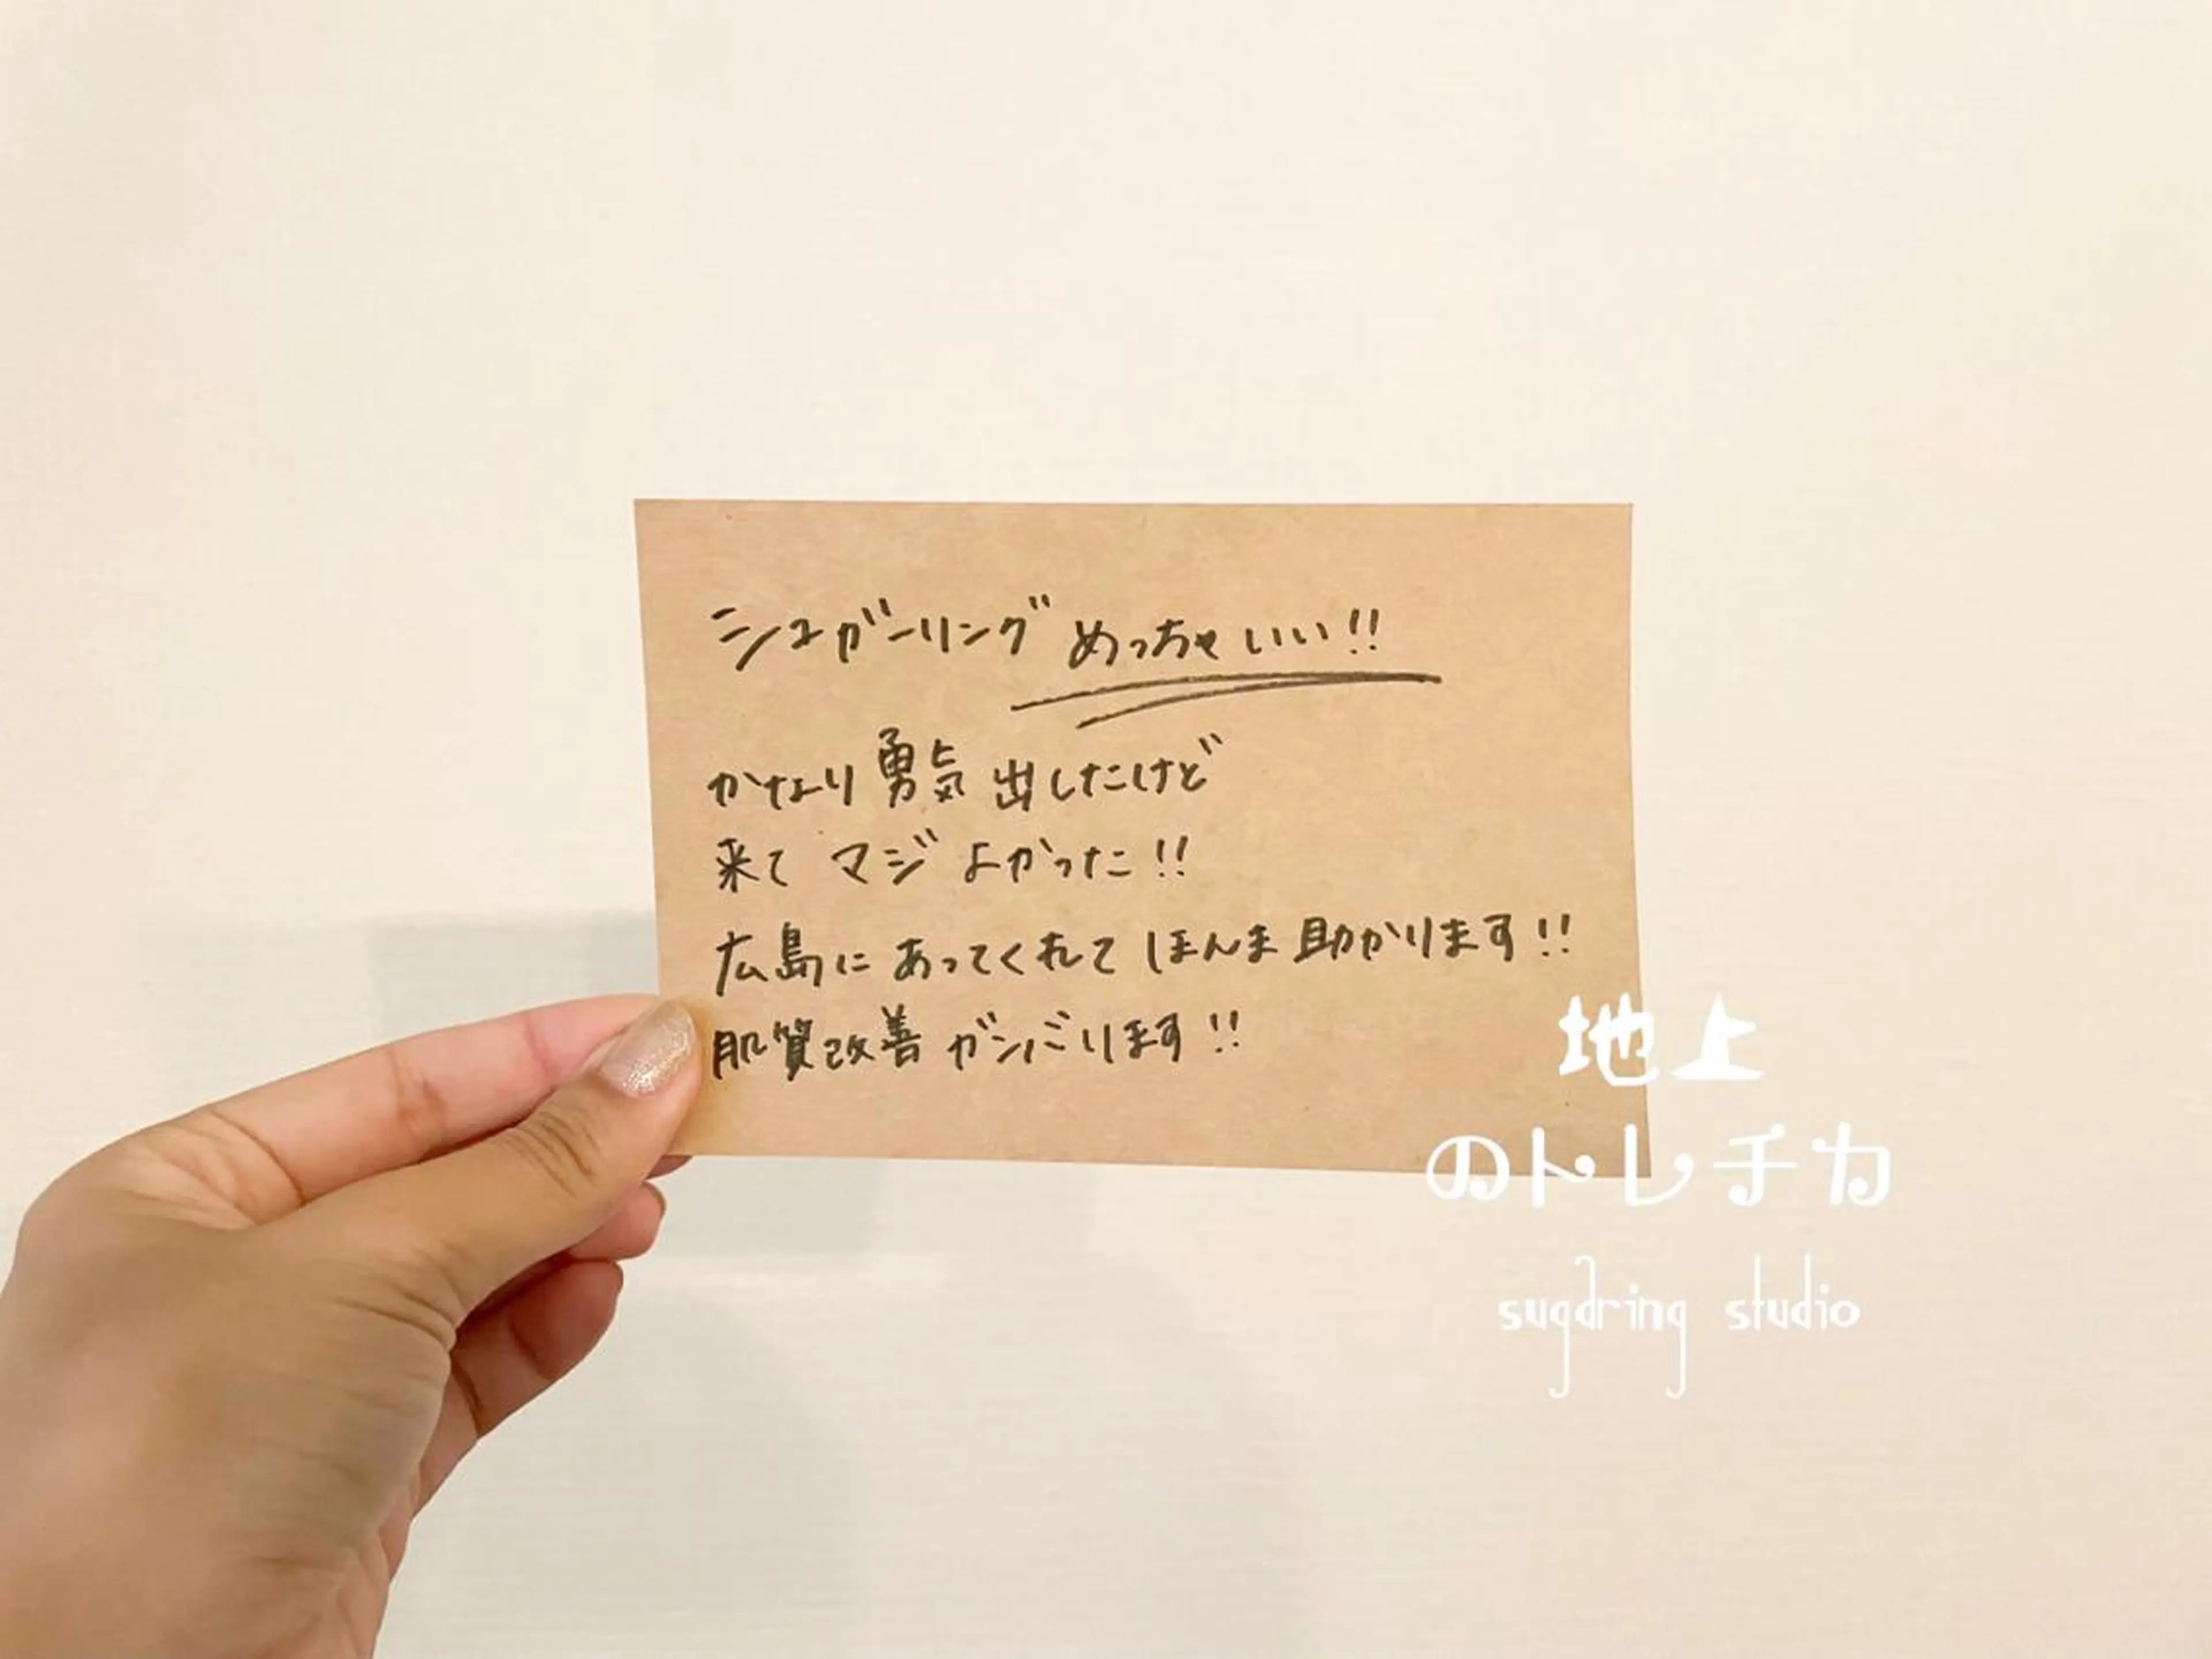 シュガーリング めっちゃいい!!
かなり勇気出したけど
来て マジ よかった!!
広島に あってくれて ほんま 助かります!!
肌質改善 ガンバります!!
地上
のトレチカ
sugaring studio